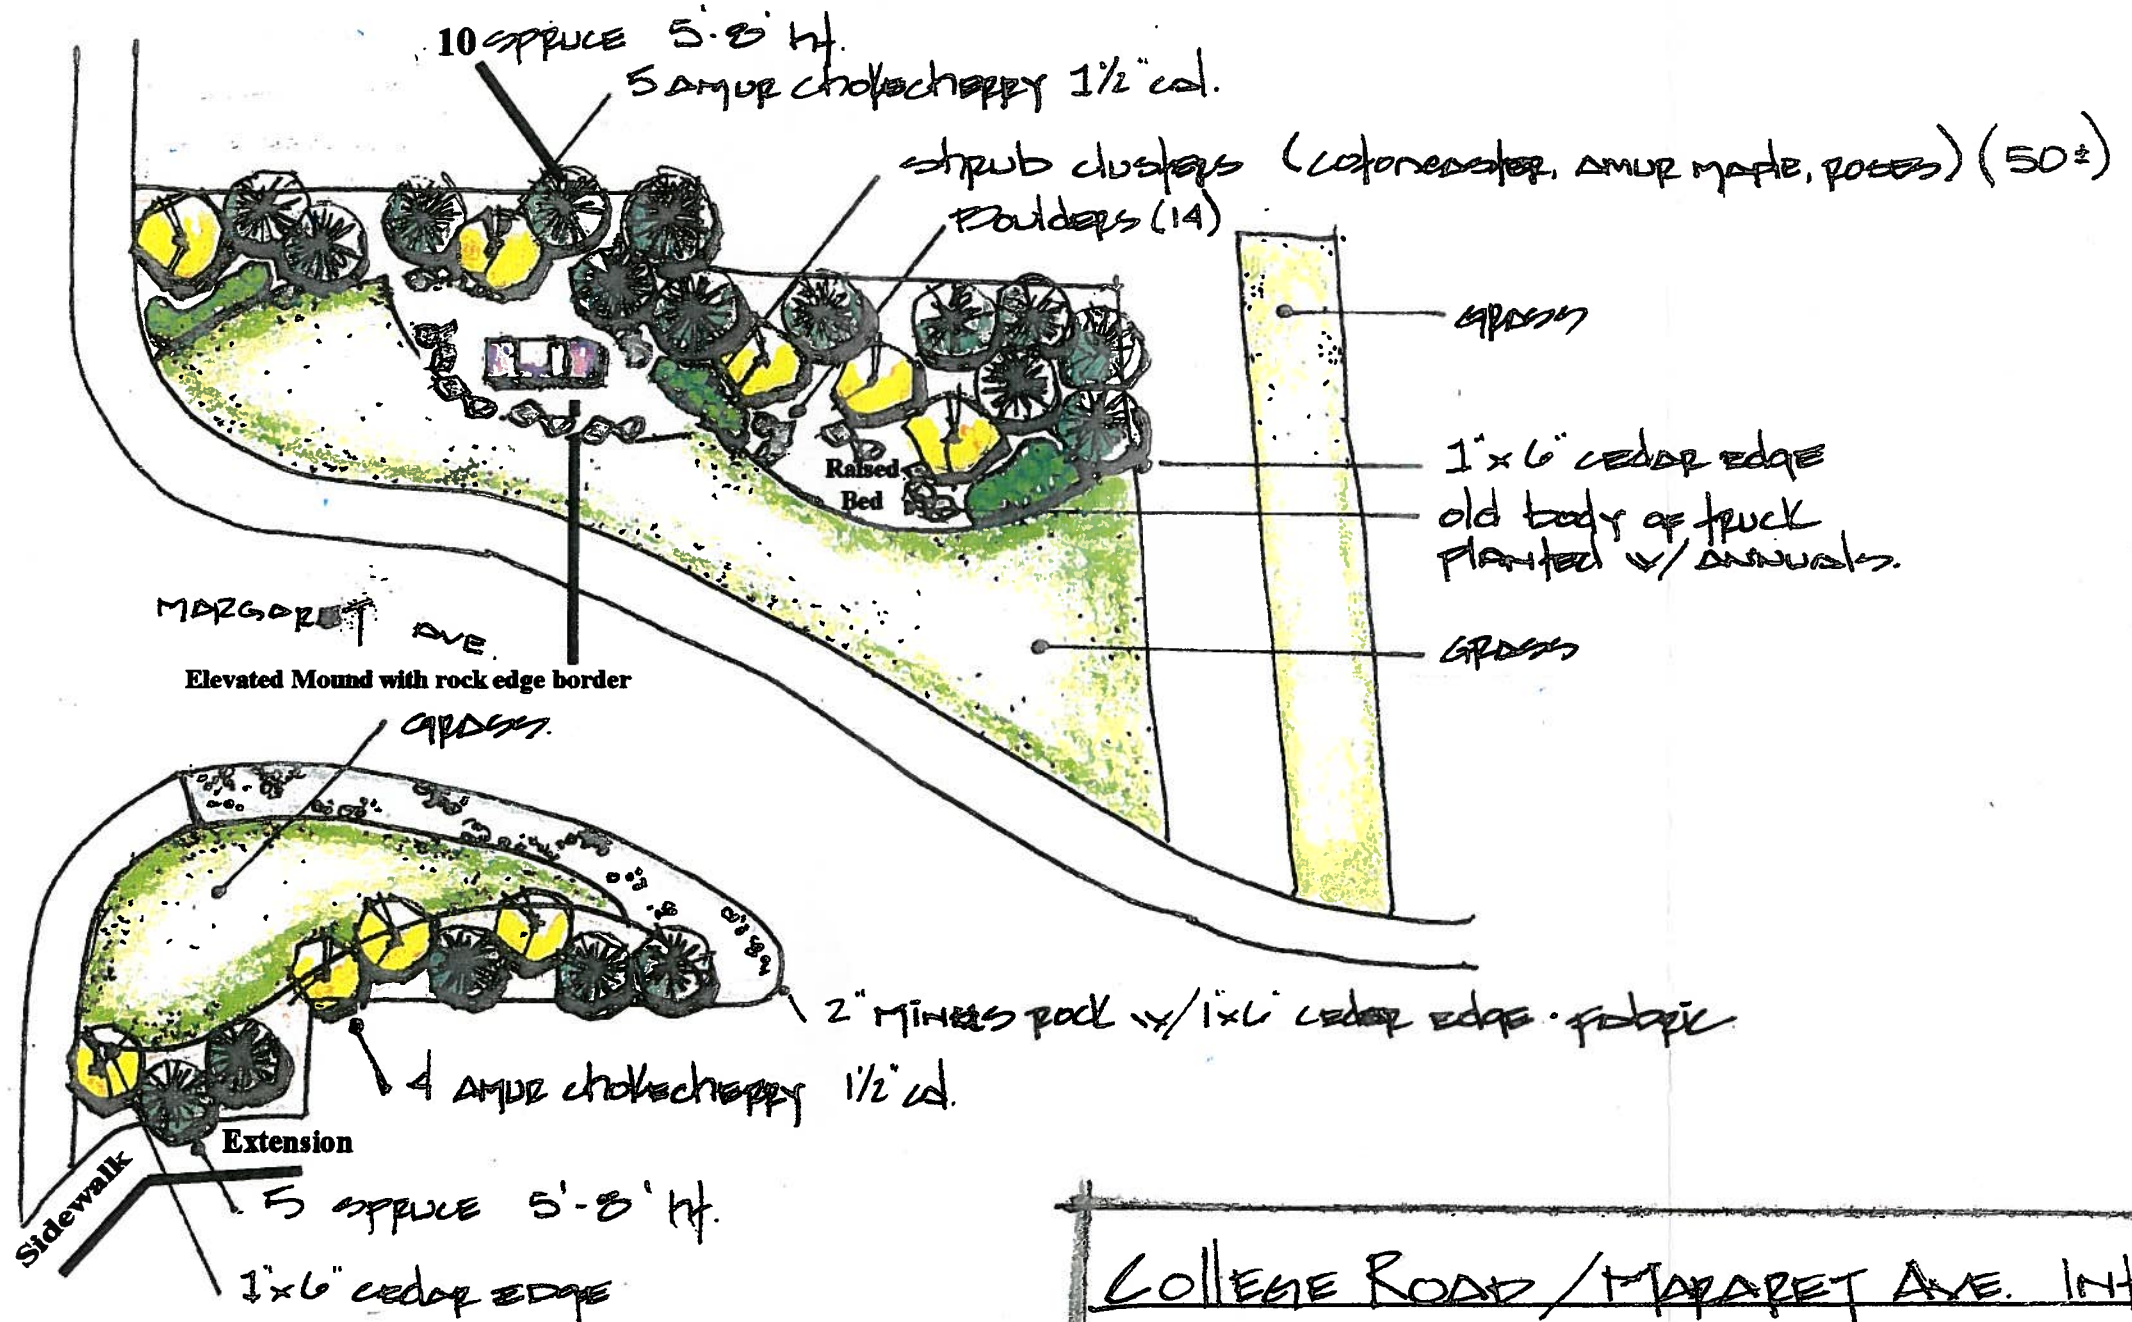 10 SPRUCE 5'-8' ht.
5 AMUR CHOKECHERRY 1½" cal.
SHRUB CLUSTERS (COTONEASTER, AMUR MAPLE, ROSES) (50±)
BOULDERS (14)
GRASS
1"x6" CEDAR EDGE
Raised
Bed
old body of TRUCK
PLANTED W/ ANNUALS.
MARGARET AVE.
GRASS
Elevated Mound with rock edge border
GRASS.
2" MINUS ROCK W/ 1"x6" CEDAR EDGE · FABRIC
4 AMUR CHOKECHERRY 1½" cal.
Extension
Sidewalk
5 SPRUCE 5'-8' ht.
1"x6" CEDAR EDGE
COLLEGE ROAD / MARARET AVE. INt